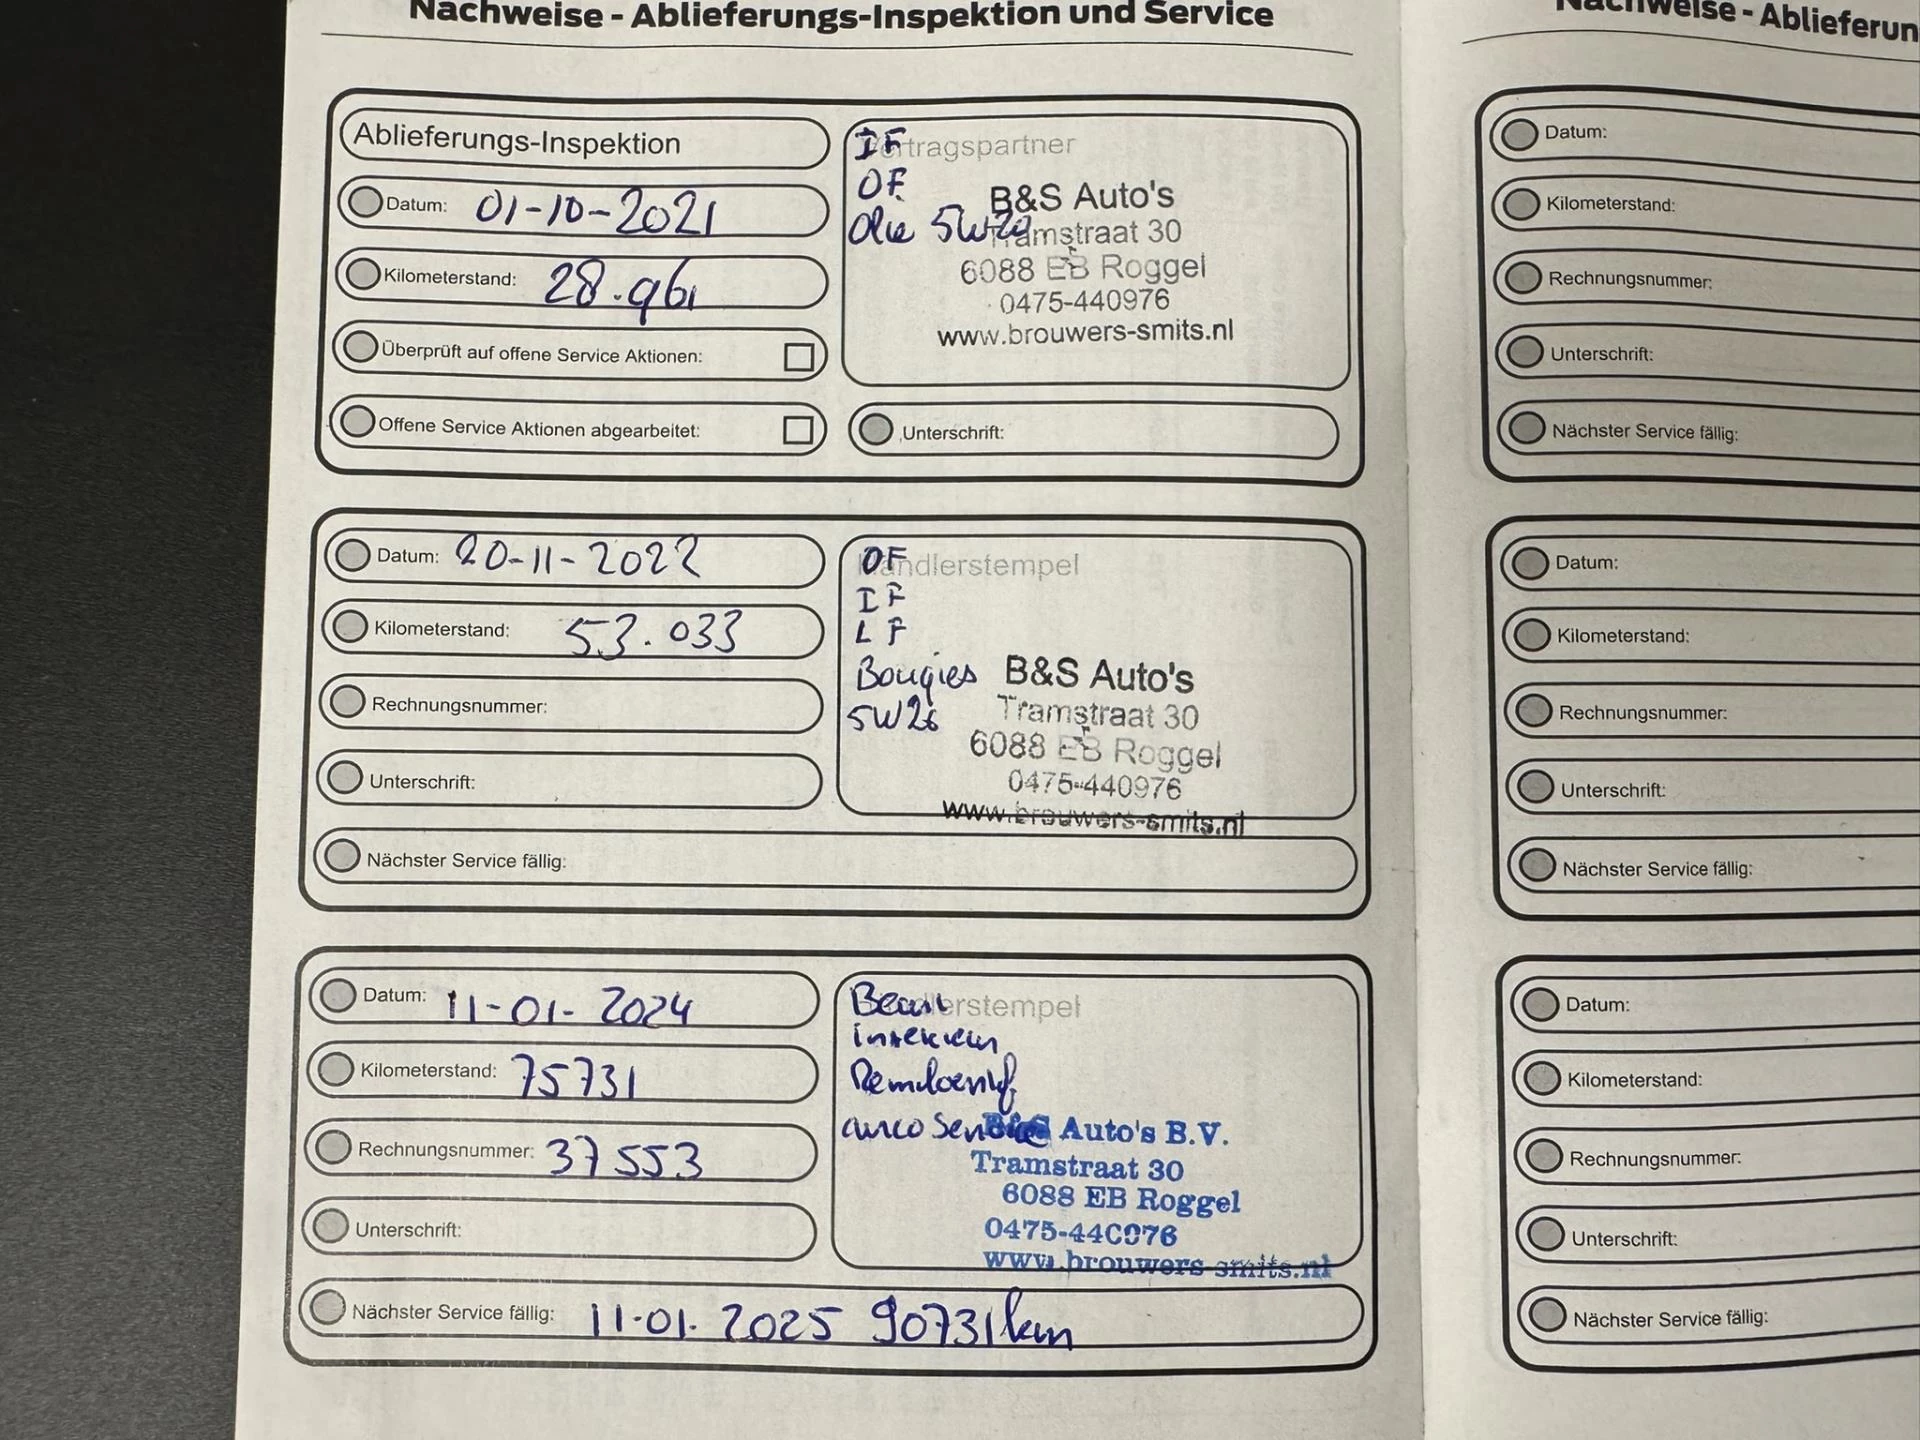 Nachweise - Ablieferungs-Inspektion und Service
Ablieferungs-Inspektion
Datum: 01-10-2021
Kilometerstand: 28.961
Überprüft auf offene Service Aktionen:
Offene Service Aktionen abgearbeitet:
Vertragspartner
IF
OF
Olie 5W20
B&S Auto's
Tramstraat 30
6088 EB Roggel
0475-440976
www.brouwers-smits.nl
Unterschrift:
Datum: 20-11-2022
Kilometerstand: 53.033
Rechnungsnummer:
Unterschrift:
Händlerstempel
OF
IF
LF
Bougies
5W20
B&S Auto's
Tramstraat 30
6088 EB Roggel
0475-440976
www.brouwers-smits.nl
Nächster Service fällig:
Datum: 11-01-2024
Kilometerstand: 75731
Rechnungsnummer: 37553
Unterschrift:
Händlerstempel
Beurt
interieur
airco Service
B&S Auto's B.V.
Tramstraat 30
6088 EB Roggel
0475-440976
www.brouwers-smits.nl
Nächster Service fällig: 11-01-2025 90731km
Nachweise - Ablieferun
Datum:
Kilometerstand:
Rechnungsnummer:
Unterschrift:
Nächster Service fällig:
Datum:
Kilometerstand:
Rechnungsnummer:
Unterschrift:
Nächster Service fällig:
Datum:
Kilometerstand:
Rechnungsnummer:
Unterschrift:
Nächster Service fällig: